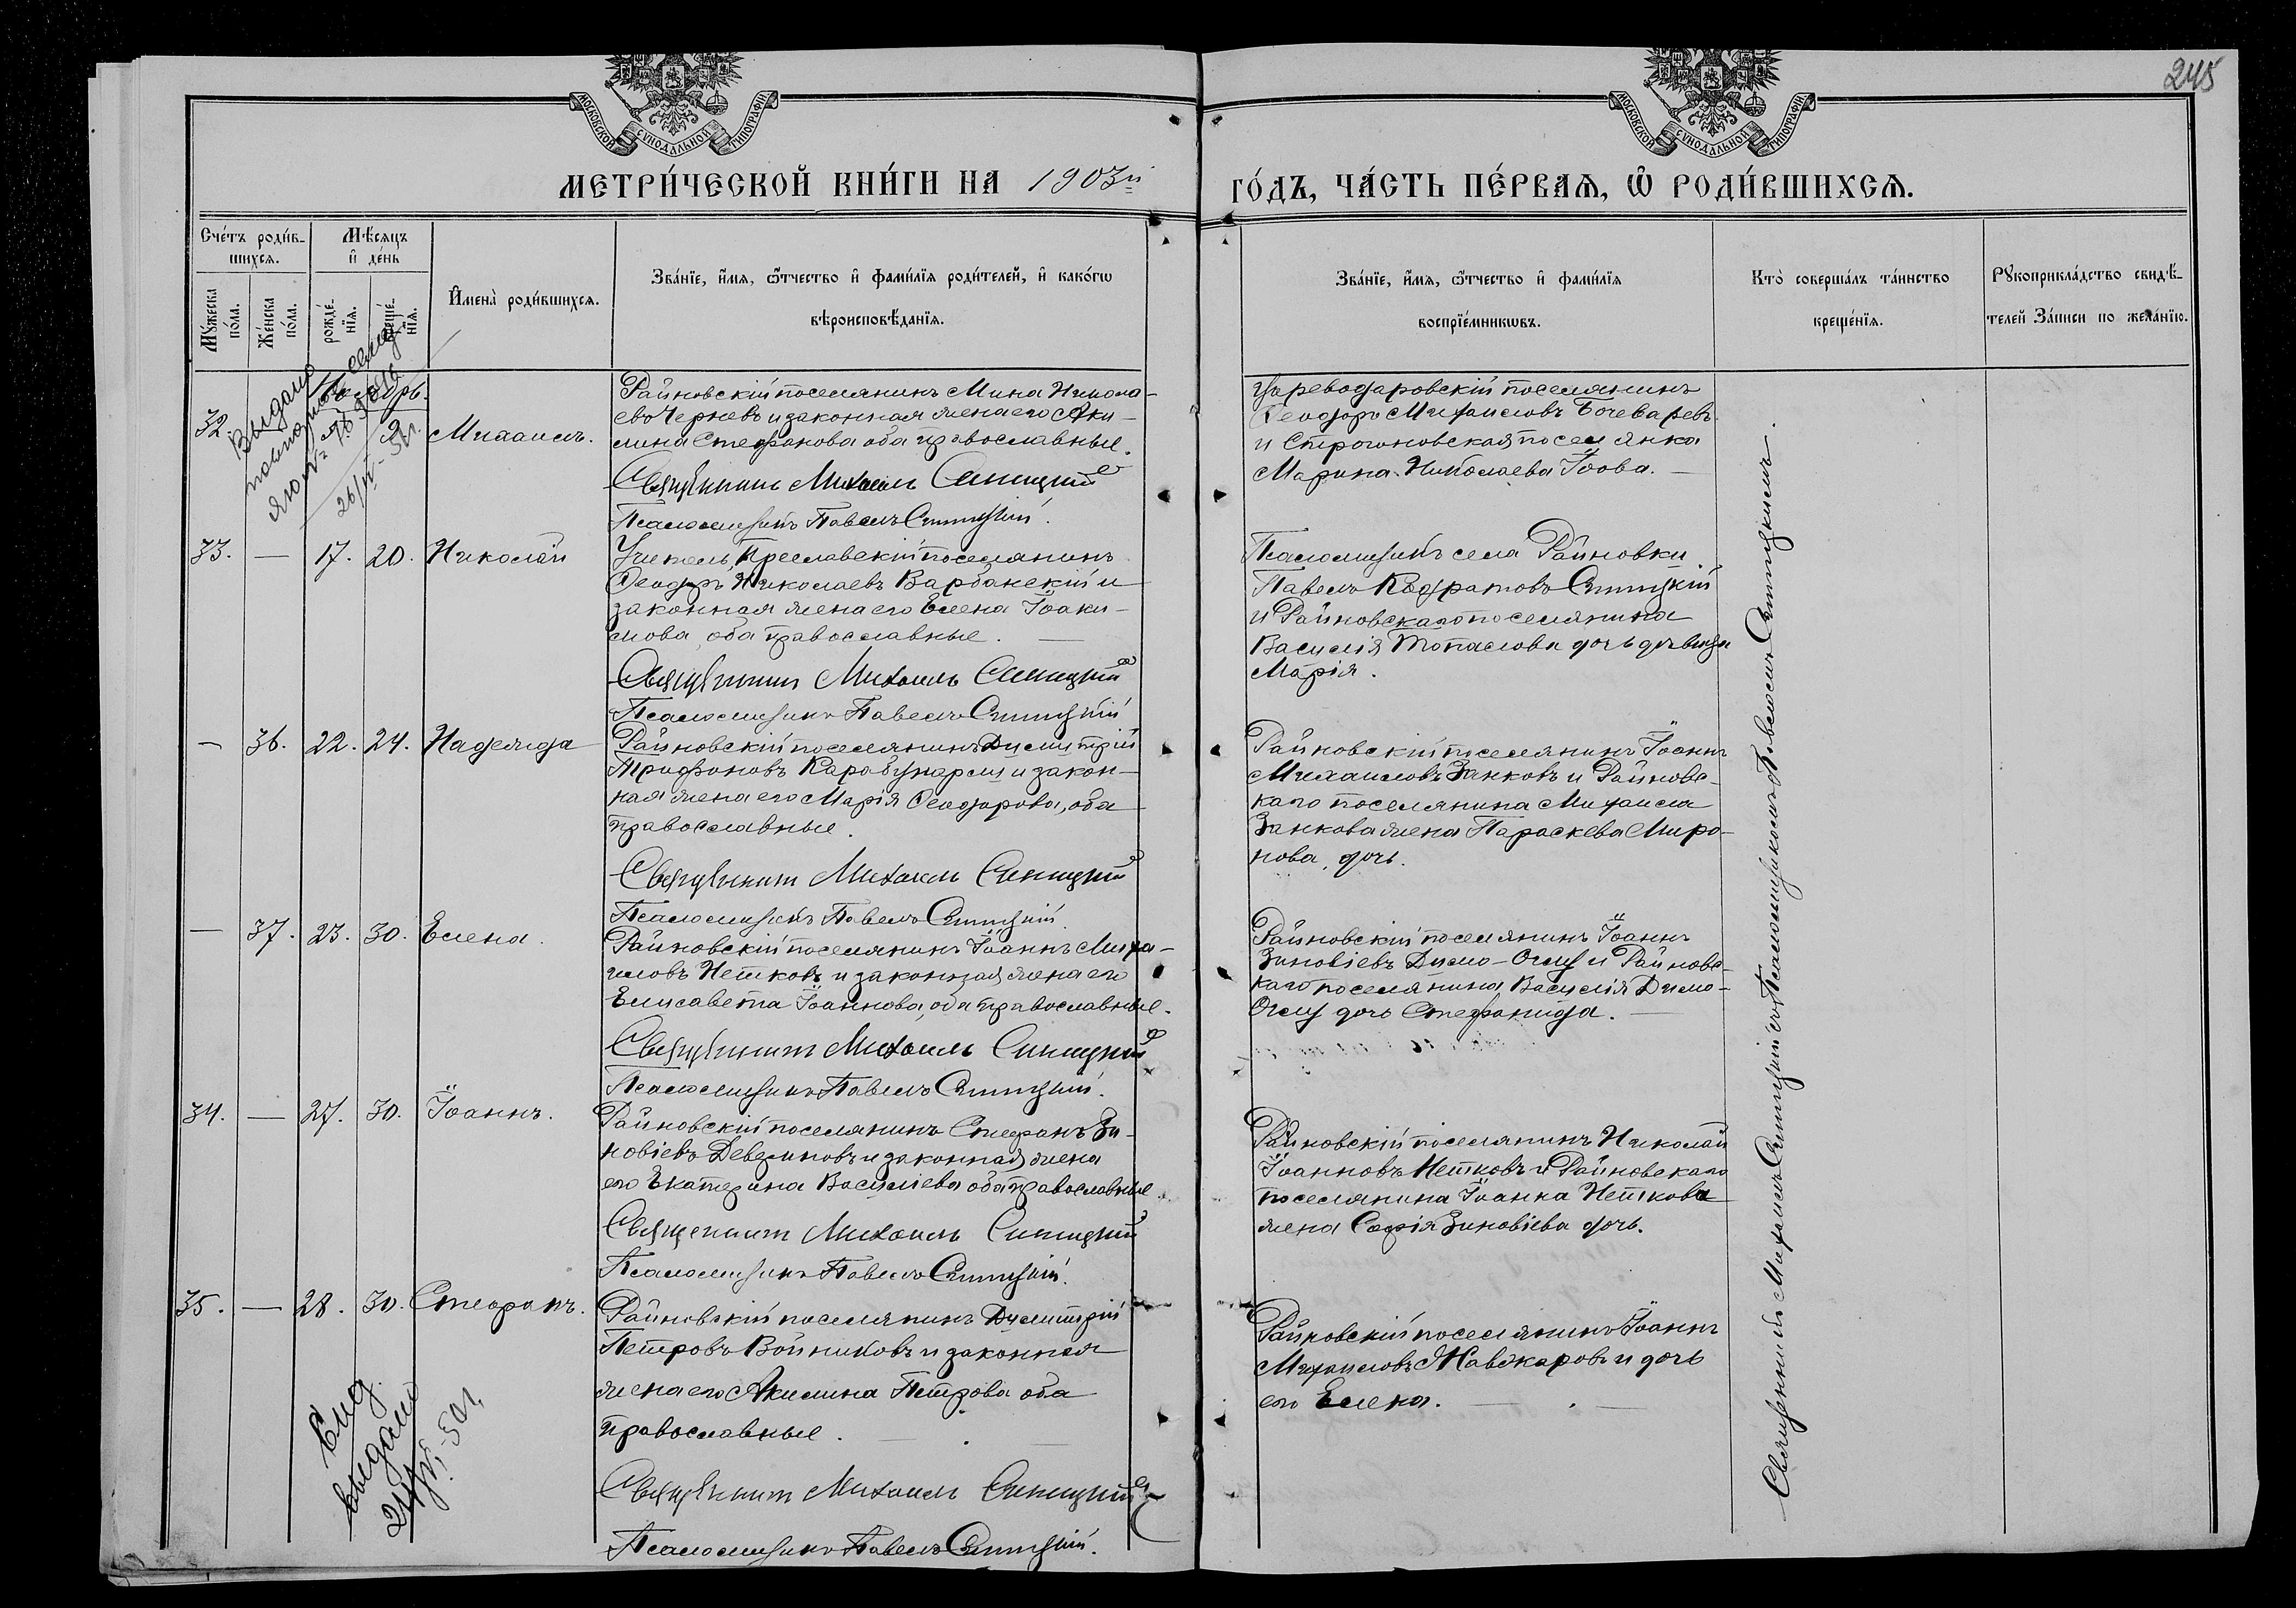 245
МОСКОВСКОЙ СѴНОДАЛЬНОЙ ТИПОГРАФІИ
МОСКОВСКОЙ СѴНОДАЛЬНОЙ ТИПОГРАФІИ
МЕТРИ́ЧЕСКОЙ КНИ́ГИ НА 1903й
ГО́ДЪ, ЧА́СТЬ ПЕ́РВАѦ, Ѽ РОДИ́ВШИХСѦ.
Сче́тъ роди́в-
шихсѧ.
Мѣ́сѧцъ
и҆ де́нь
Мꙋ́жеска по́ла.
Же́нска по́ла.
рожде́-
нїѧ.
креще́-
нїѧ.
И҆мена̀ роди́вшихсѧ.
Зва́нїе, и҆́мѧ, ѻ҆́тчество и҆ фами́лїѧ роди́телей, и҆ како́гѡ
вѣроисповѣ́данїѧ.
Зва́нїе, и҆́мѧ, ѻ҆́тчество и҆ фами́лїѧ
воспрїе́мникѡвъ.
Кто̀ соверша́лъ та́инство
креще́нїѧ.
Рꙋкоприкла́дство свидѣ́-
телей за́писи по жела́нїю.
32.
Выдано
26/VI - 51г.
Михаилъ.
Райновскій поселянинъ Мина Никола-
евъ Черневъ и законная жена его Аки-
лина Стефанова оба православные.
Священникъ Михаилъ Синицкій
Псаломщикъ Павелъ Синицкій.
Цареводаровскій поселянинъ
Ѳеодоръ Михаиловъ Бочеваревъ
и Строгоновская поселянка
Марина Николаева Іова. —
33. — 17. 20. Николай
Учитель, Преславскій поселянинъ
Ѳеодоръ Николаевъ Варбанскій и
законная жена его Елена Іоаки-
мова, оба православные. —
Священникъ Михаилъ Синицкій
Псаломщикъ Павелъ Синицкій
Псаломщикъ села Райновки
Павелъ Кодратовъ Синицкій
и Райновскаго поселянина
Василія Топалова дочь девица
Марія.
— 36. 22. 24. Надежда
Райновскій поселянинъ Димитрій
Трифоновъ Карабунарли и закон-
ная жена его Марія Ѳеодорова, оба
православные.
Священникъ Михаилъ Синицкій
Псаломщикъ Павелъ Синицкій.
Райновскій поселянинъ Іоаннъ
Михаиловъ Занковъ и Райновс-
каго поселянина Михаила
Занкова жена Параскева Миро-
нова дочь.
— 37. 23. 30. Елена.
Райновскій поселянинъ Іоаннъ Миха-
иловъ Нетковъ и законная жена его
Елисавета Іоаннова, оба православные.
Священникъ Михаилъ Синицкій
Псаломщикъ Павелъ Синицкій.
Райновскій поселянинъ Іоаннъ
Зиновіевъ Димо-Оглу и Райновс-
каго поселянина Василія Димо-
Оглу дочь Стефанида. —
34. — 27. 30. Іоаннъ.
Райновскій поселянинъ Стефанъ Зи-
новіевъ Деведжиновъ и законная жена
его Екатерина Василіева оба православные.
Священникъ Михаилъ Синицкій
Псаломщикъ Павелъ Синицкій.
Райновскій поселянинъ Николай
Іоанновъ Нетковъ и Райновскаго
поселянина Іоанна Неткова
жена Софія Зиновіева дочь.
35. — 28. 30. Стефанъ.
Райновскій поселянинъ Димитрій
Петровъ Войниковъ и законная
жена его Акилина Петрова оба
православные.
Священникъ Михаилъ Синицкій
Псаломщикъ Павелъ Синицкій.
Райновскій поселянинъ Іоаннъ
Михаиловъ Жавжаровъ и дочь
его Елена. —
выдано
Священникъ Михаилъ Синицкій съ Псаломщикомъ Павломъ Синицкимъ.